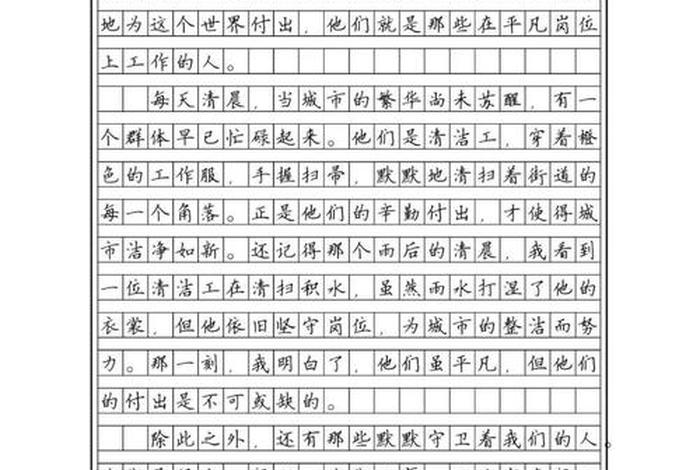 地为这个世界付出，他们就是那些在平凡岗位
上工作的人。
每天清晨，当城市的繁华尚未苏醒，有一
个群体早已忙碌起来。他们是清洁工，穿着橙
色的工作服，手握扫帚，默默地清扫着街道的
每一个角落。正是他们的辛勤付出，才使得城
市洁净如新。还记得那个雨后的清晨，我看到
一位清洁工在清扫积水，虽然雨水打湿了他的
衣裳，但他依旧坚守岗位，为城市的整洁而努
力。那一刻，我明白了，他们虽平凡，但他们
的付出是不可或缺的。
除此之外，还有那些默默守卫着我们的人。